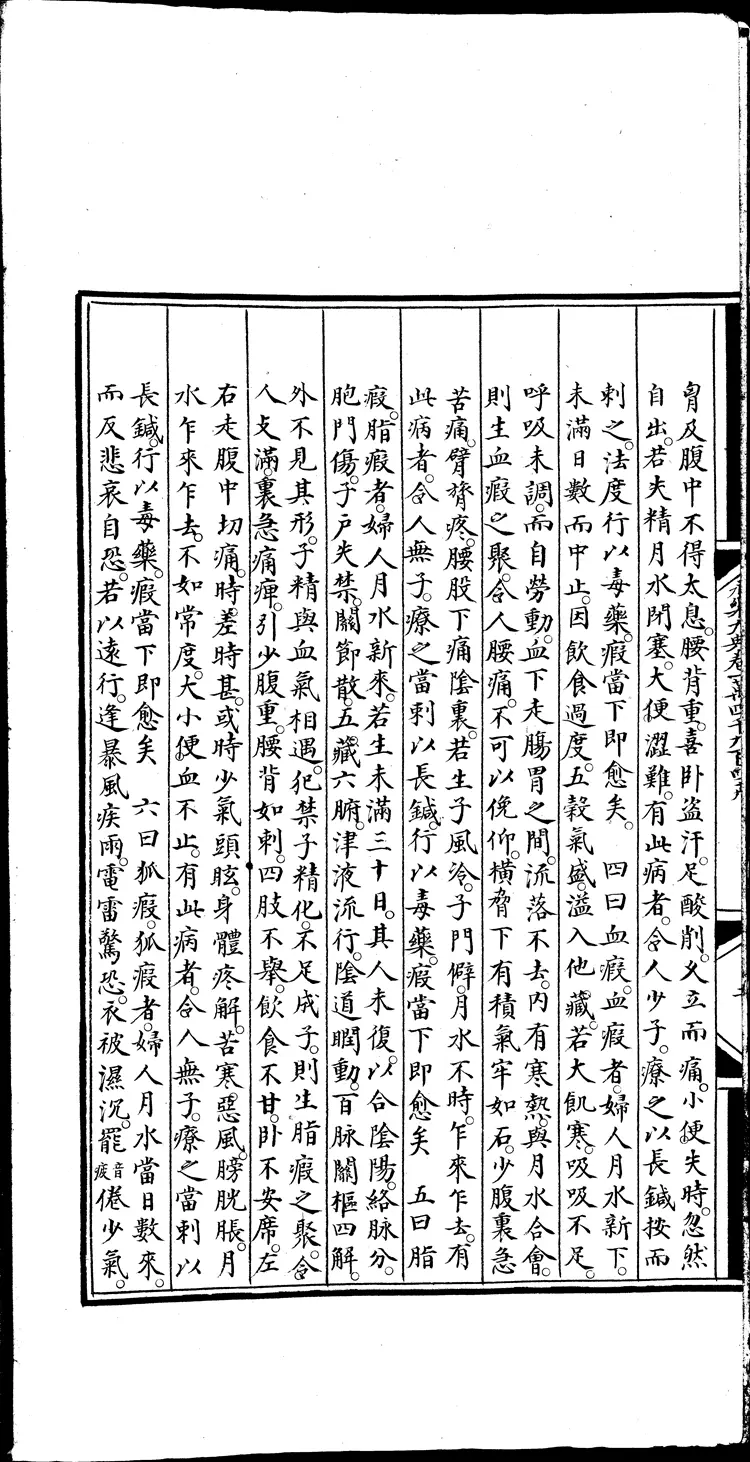 胷及腹中不得太息。腰背重。喜卧盗汗。足酸削。久立而痛。小便失時。忽然
自出。若失精月水閉塞。大便澀難。有此病者。令人少子。療之以長鍼按而
刺之。法度行以毒藥。瘕當下即愈矣。 四曰血瘕。血瘕者。婦人月水新下。
未滿日數而中止。因飲食過度。五穀氣盛。溢入他藏。若大飢寒。吸吸不足。
呼吸未調。而自勞動。血下走腸胃之間。流落不去。内有寒熱。與月水合會。
則生血瘕之聚。令人腰痛。不可以俛仰。横脅下有積氣牢如石。少腹裏急
苦痛。臂膂疼。腰股下痛陰裏。若生子風冷。子門僻。月水不時。乍來乍去。有
此病者。令人無子。療之當刺以長鍼。行以毒藥。瘕當下即愈矣 五曰脂
瘕。脂瘕者。婦人月水新來。若生未滿三十日。其人未復。以合陰陽。絡脉分。
胞門傷。子户失禁。關節散。五藏六腑。津液流行。陰道瞤動。百脉關樞四解。
外不見其形。子精與血氣相遇。犯禁子精化。不足成子。則生脂瘕之聚。令
人支滿。裏急痛痺。引少腹重。腰背如刺。四肢不舉。飲食不甘。卧不安席。左
右走腹中切痛。時差時甚。或時少氣頭眩。身體疼解。苦寒惡風。膀胱脹。月
水乍來乍去。不如常度。大小便血不止。有此病者。令人無子。療之當刺以
長鍼。行以毒藥。瘕當下即愈矣 六曰狐瘕。狐瘕者。婦人月水當日數來。
而反悲哀自恐。若以遠行。逢暴風疾雨。電雷驚恐。衣被濕沉。罷音疲倦少氣。